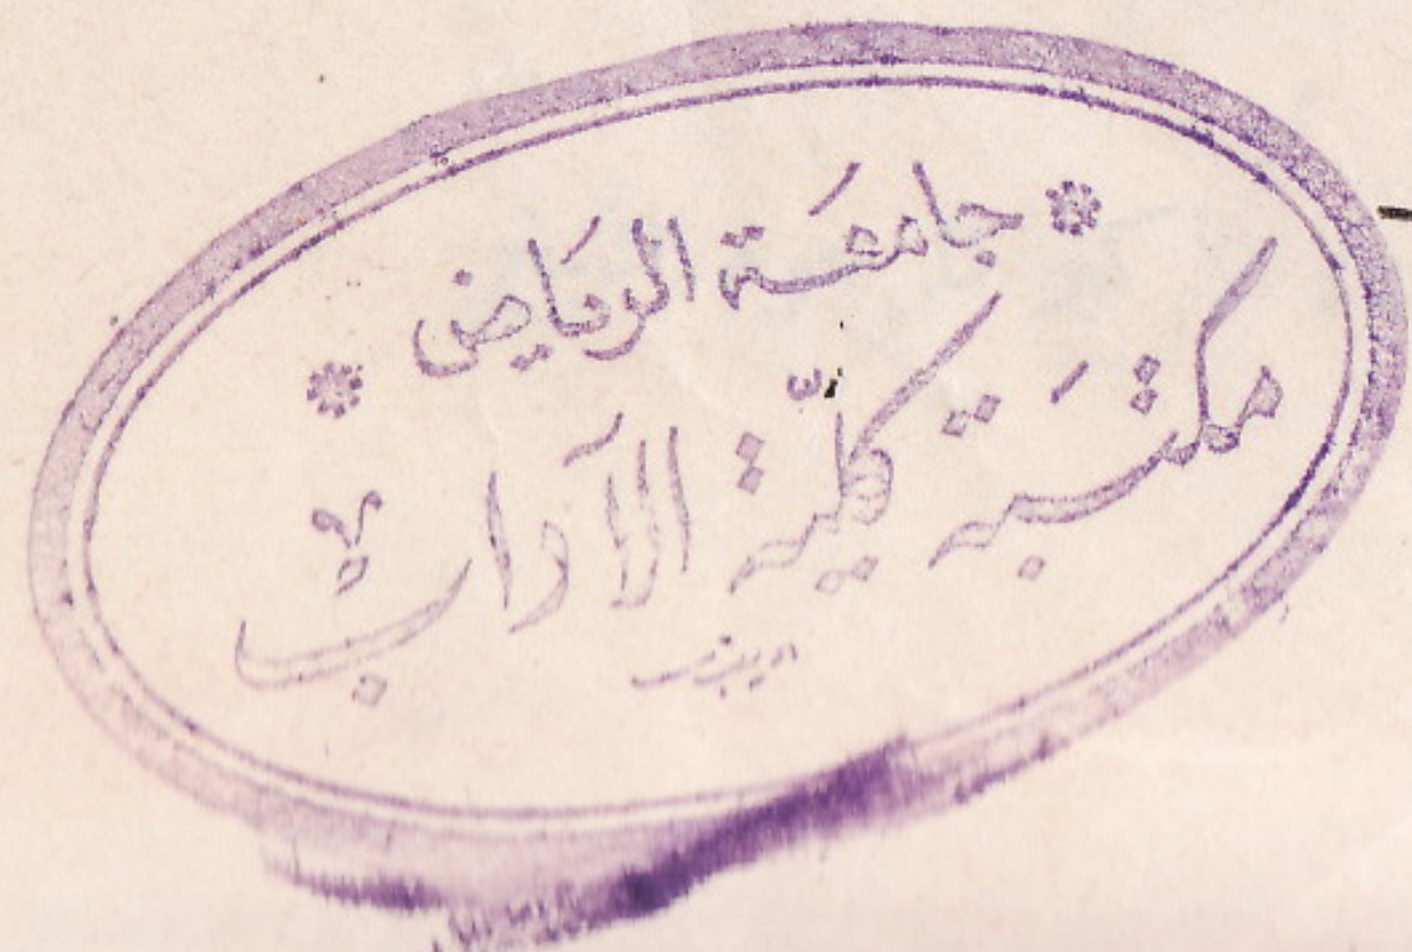 جامعَة الريَاض
مكتبَة كليّة الآداب